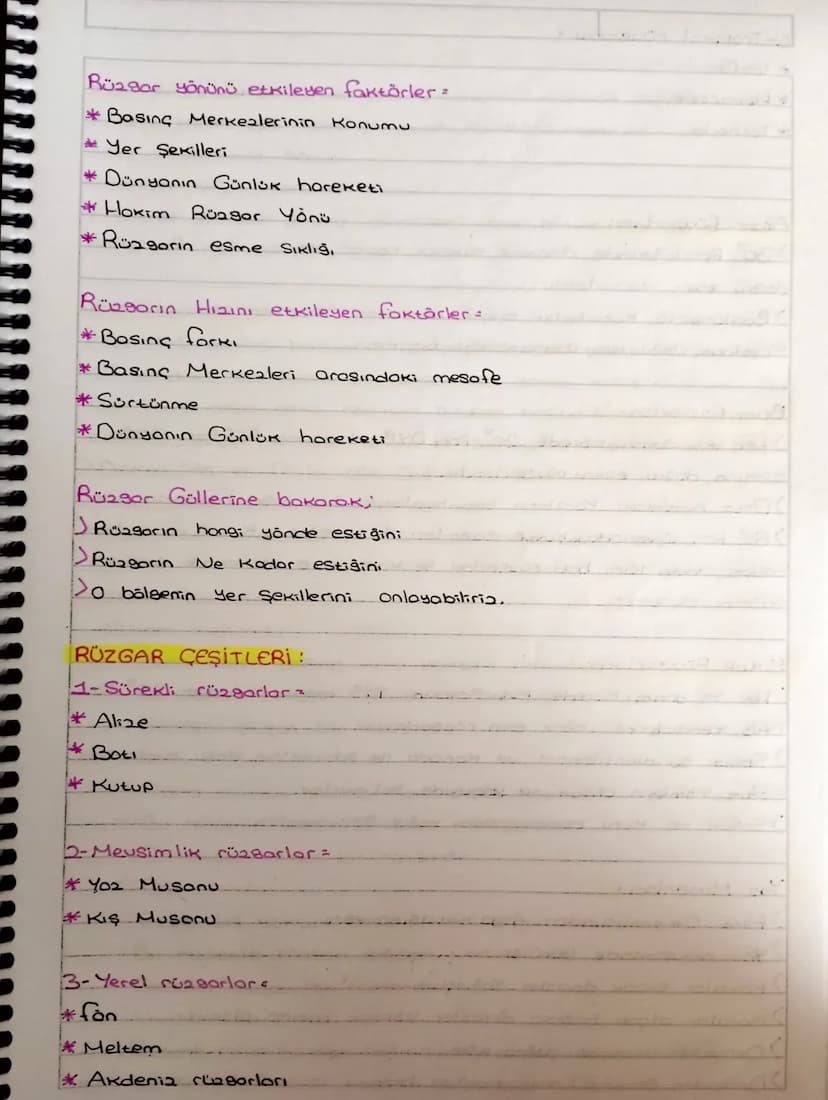 Rüzgar yönünü etkileyen faktörler =
* Basınç Merkezlerinin Konumu
* Yer Şekilleri
* Dünyanın Günlük hareketi
* Hakim Rüzgar Yönü
* Rüzgarın esme sıklığı
Rüzgarın Hızını etkileyen faktörler =
* Basınç farkı
* Basınç Merkezleri arasındaki mesafe
* Sürtünme
* Dünyanın Günlük hareketi
Rüzgar Güllerine bakarak;
> Rüzgarın hangi yönde estiğini
> Rüzgarın Ne Kadar estiğini
> O bölgenin yer şekillerini anlayabiliriz.
RÜZGAR ÇEŞİTLERİ :
1- Sürekli rüzgarlar =
* Alize
* Batı
* Kutup
2- Mevsimlik rüzgarlar =
* Yaz Musonu
* Kış Musonu
3- Yerel rüzgarlar =
* fön
* Meltem
* Akdeniz rüzgarları